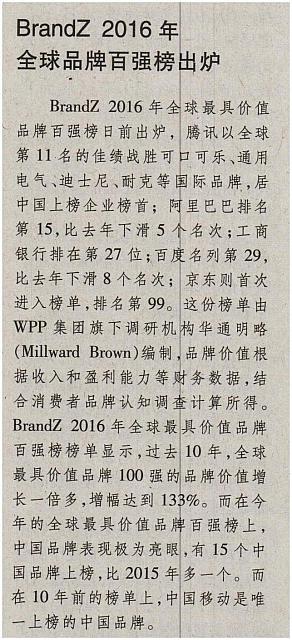 BrandZ 2016 年
全球品牌百强榜出炉
BrandZ 2016 年全球最具价值
品牌百强榜日前出炉，腾讯以全球
第 11 名的佳绩战胜可口可乐、通用
电气、迪士尼、耐克等国际品牌，居
中国上榜企业榜首；阿里巴巴排名
第 15，比去年下滑 5 个名次；工商
银行排在第 27 位；百度名列第 29，
比去年下滑 8 个名次；京东则首次
进入榜单，排名第 99。这份榜单由
WPP 集团旗下调研机构华通明略
(Millward Brown)编制，品牌价值根
据收入和盈利能力等财务数据，结
合消费者品牌认知调查计算所得。
BrandZ 2016 年全球最具价值品牌
百强榜榜单显示，过去 10 年，全球
最具价值品牌 100 强的品牌价值增
长一倍多，增幅达到 133%。而在今
年的全球最具价值品牌百强榜上，
中国品牌表现极为亮眼，有 15 个中
国品牌上榜，比 2015 年多一个。而
在 10 年前的榜单上，中国移动是唯
一上榜的中国品牌。